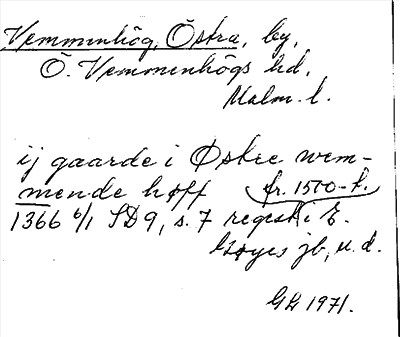 Vemmenhög, Östra, by,
Ö. Vemmenhögs hd,
Malm. l.
ij gaarde i Østre wem-
mende høff fr. 1500-t.
1366 6/1 SD 9, s. 7 regest i E.
Gøyes jb, u. d.
GH 1971.